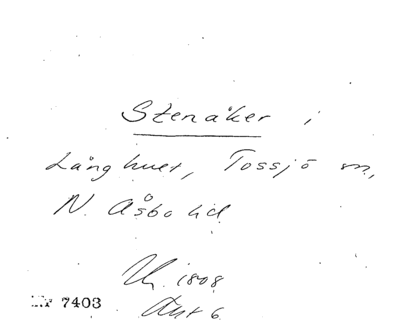 Stenåker i
Långhult, Tossjö sn,
N. Åsbo hd
1808
7403